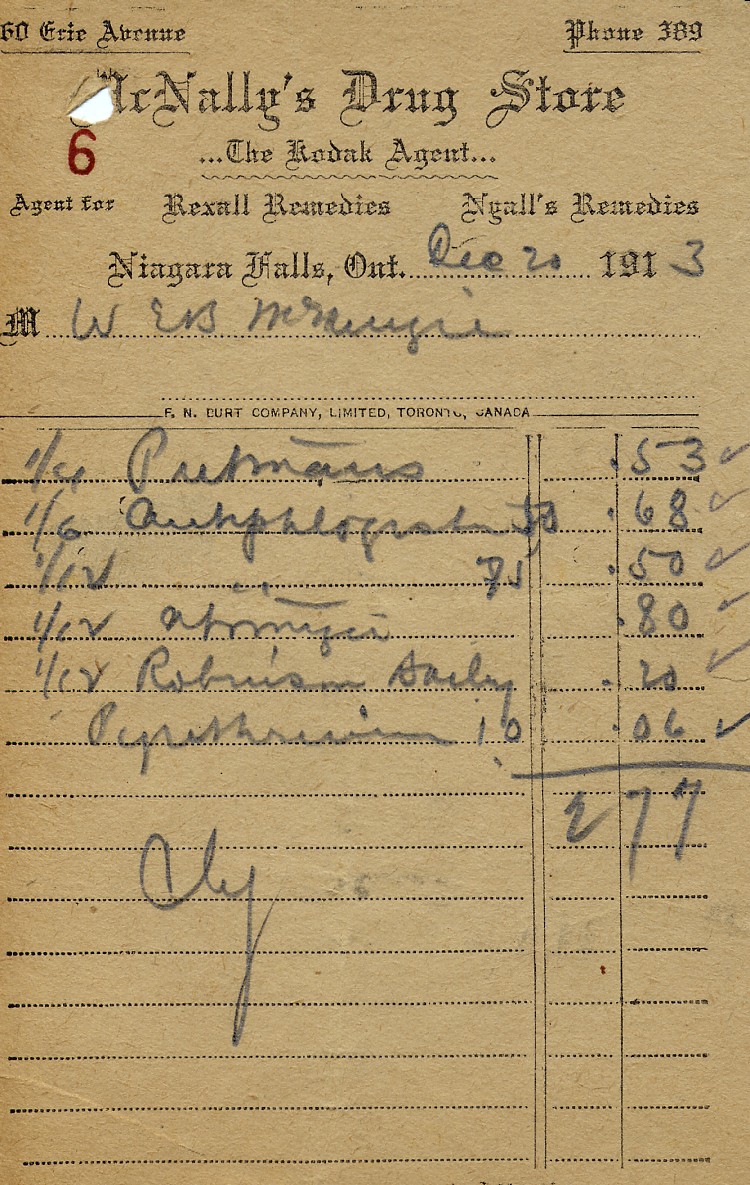 60 Erie Avenue Phone 389
McNally's Drug Store
6
...The Kodak Agent...
Agent for Rexall Remedies Nyall's Remedies
Niagara Falls, Ont. Dec 20 1913
M W E B McKenzie
F. N. BURT COMPANY, LIMITED, TORONTO, CANADA
1/4 Putmans .53 ✓
1/6 Antiphlogistin 50 .68 ✓
1/12 " 75 .50 ✓
1/12 .80 ✓
1/12 Robinson Barley .20 ✓
Pyrethreum 10 .06 ✓
2 77